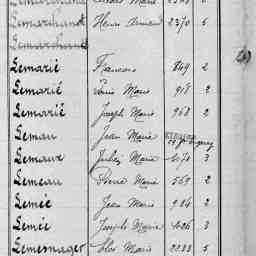 Lemarchand Henri Armand 2370 5
Lemarchand
Lemarié François 849 2
Lemarié Louis Marie 918 2
Lemarié Joseph Marie 968 2
Lemau Jean Marie
Lemaux Julien Marie 1071 3
Lemeau Pierre Marie 569 2
Lemée Jean Marie 984 2
Lemée Joseph Marie 1086 3
Lemesnager Marie 2233 5